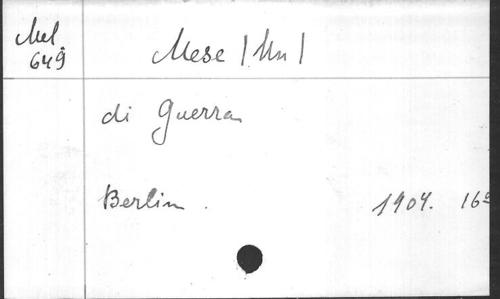 Mel.
649
Mese |Un|
di Guerra
Berlin. 1904. 16°